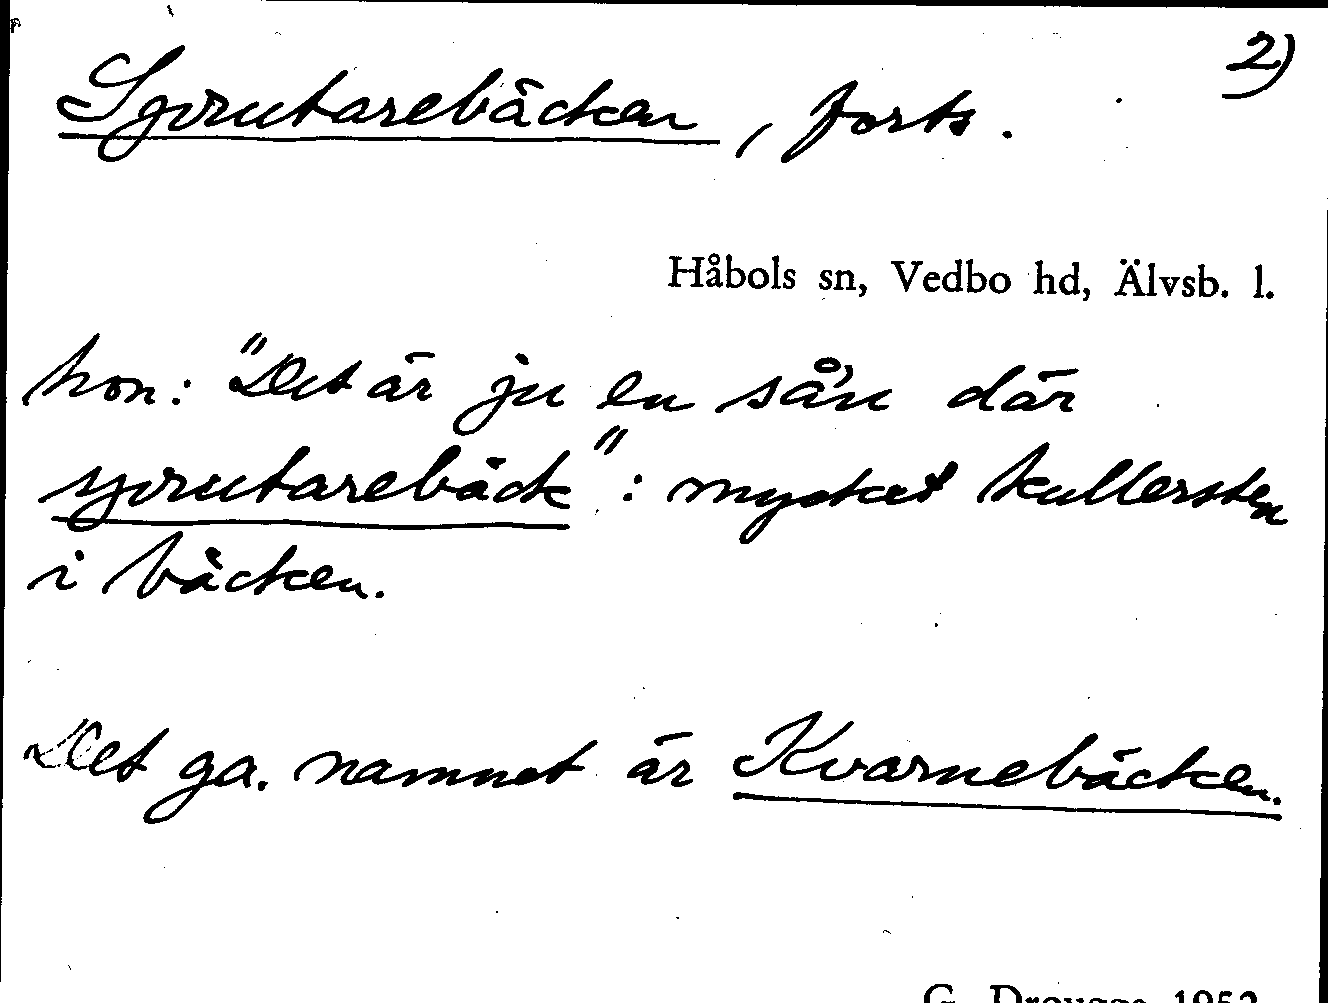 2)
Syrutarebäcken, forts.
Håbols sn, Vedbo hd, Älvsb. l.
hon: "Det är ju en så'n där
syrutarebäck": mycket kullersten
i bäcken.
Det ga. namnet är Kvarnebäcken.
G. Drougge 1952